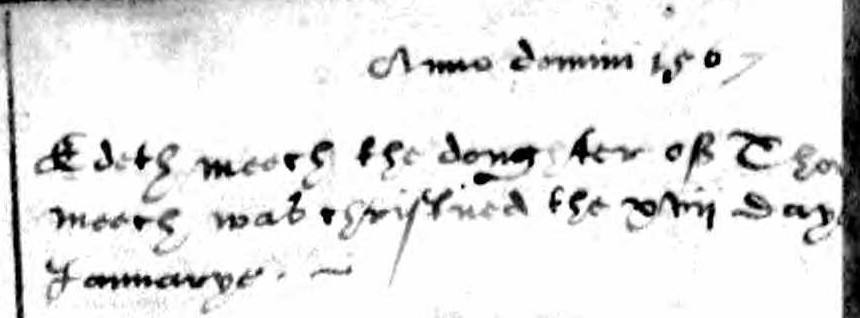 Anno domini 1567
Edeth meech the doughter off Tho
meech was christned the xviij Daye
Januarye.